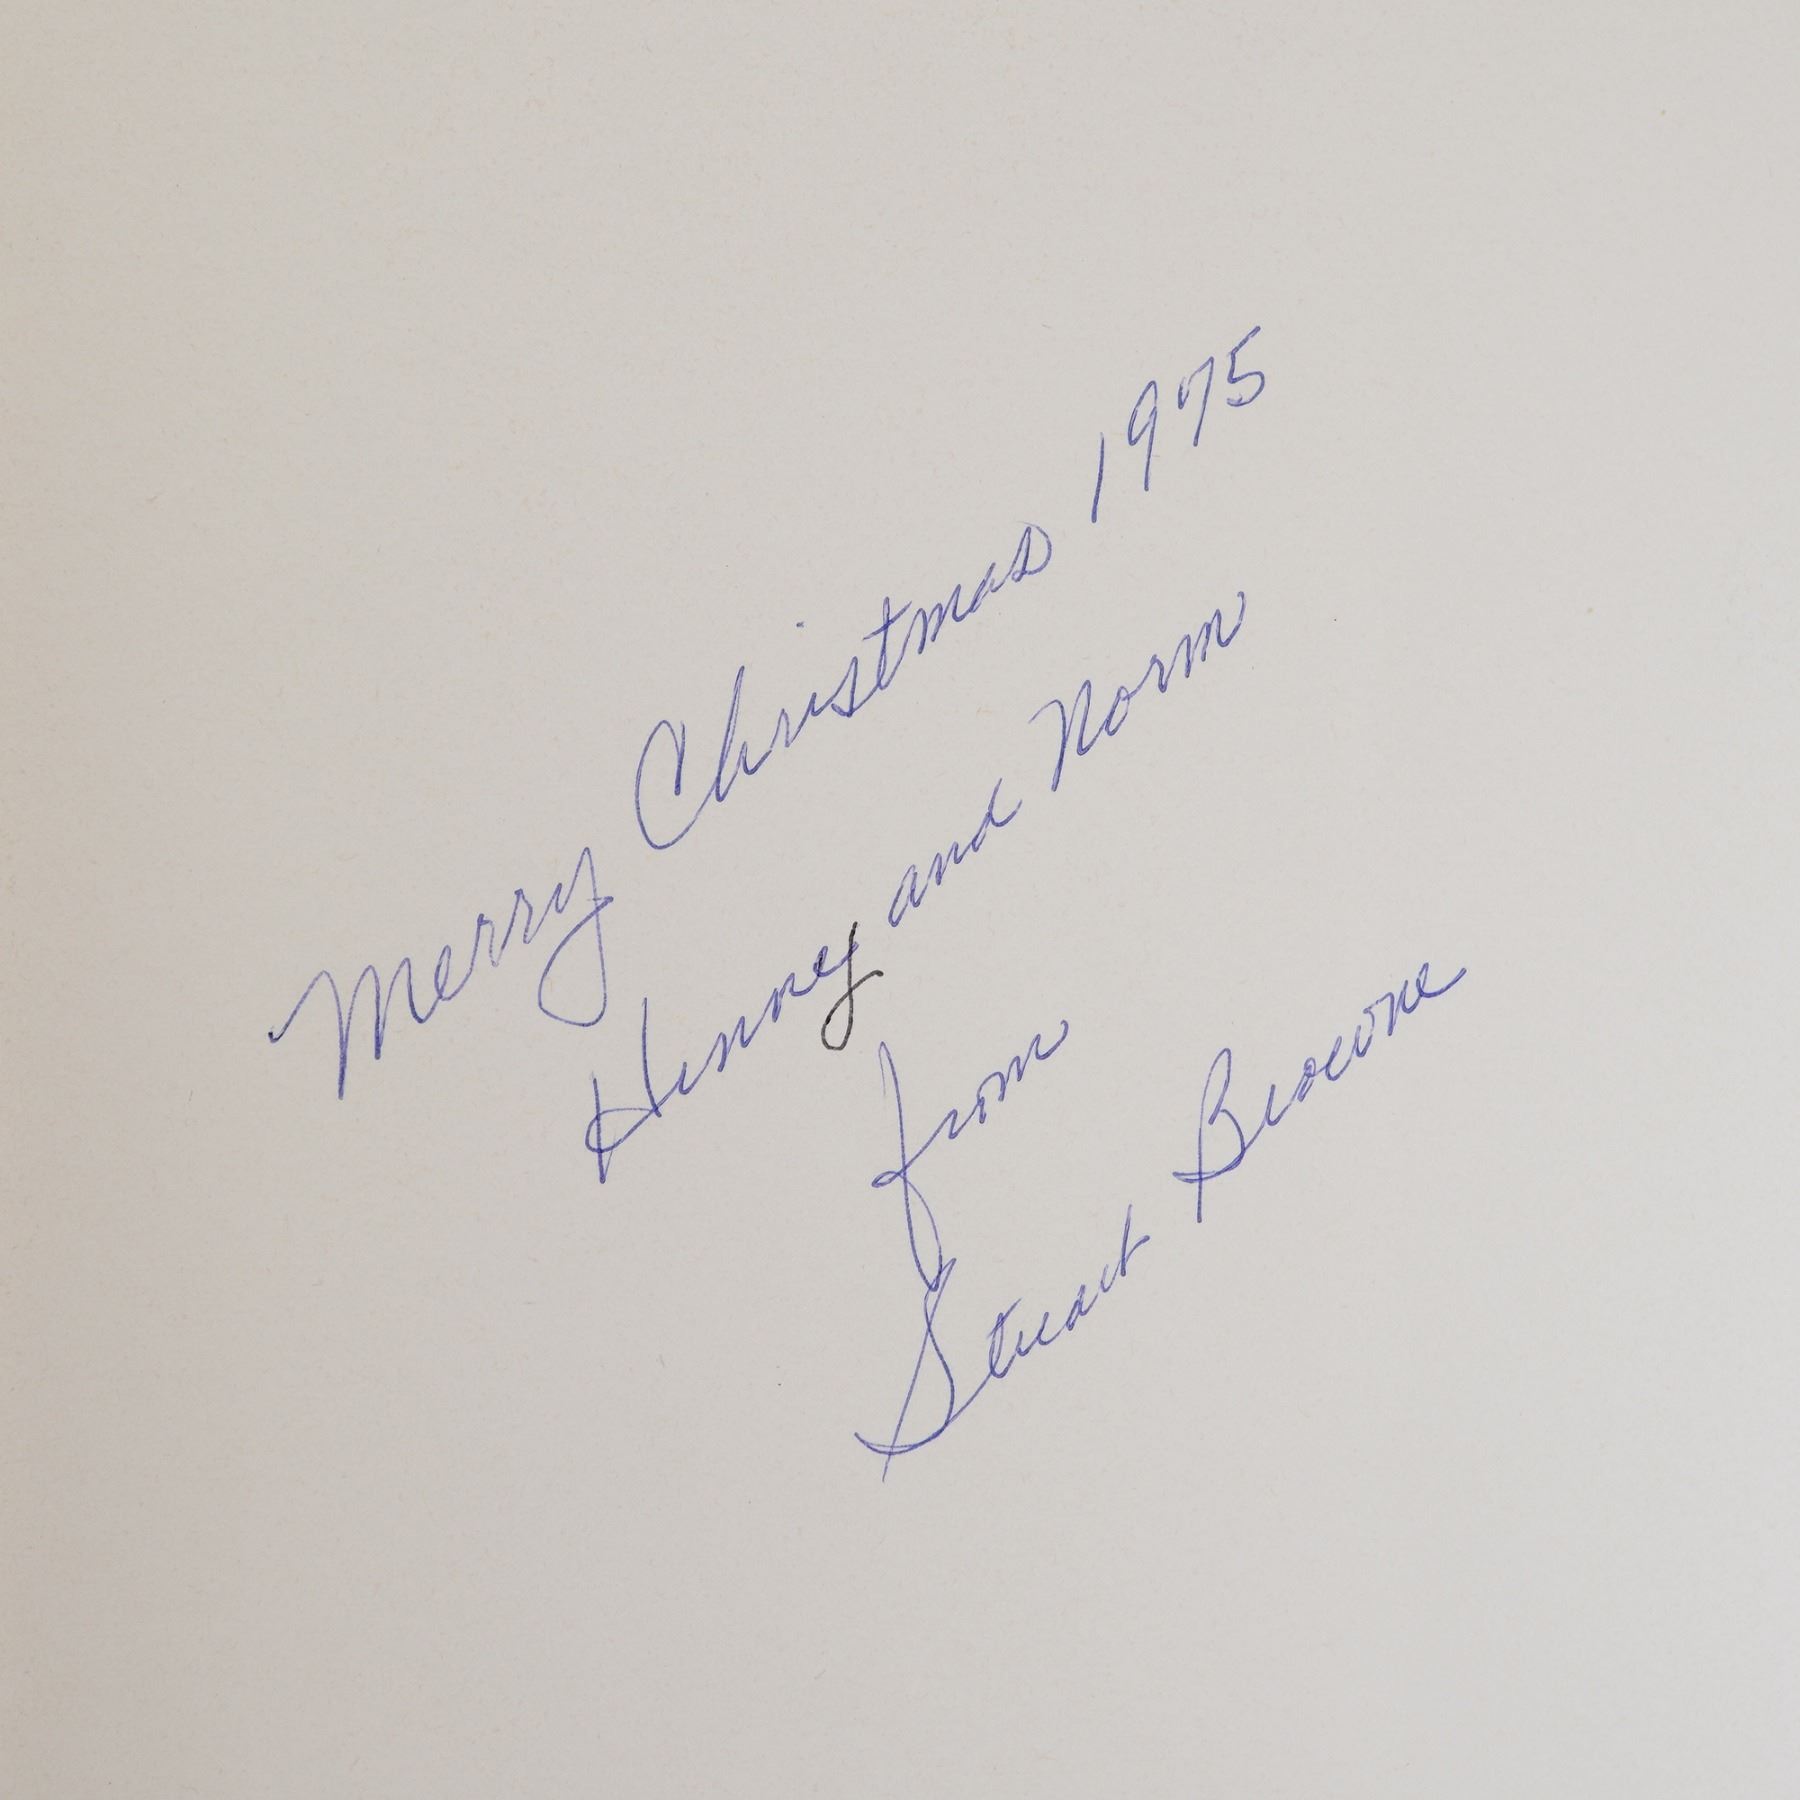 Merry Christmas 1975
Henney and Norm
from
Stuart Browne